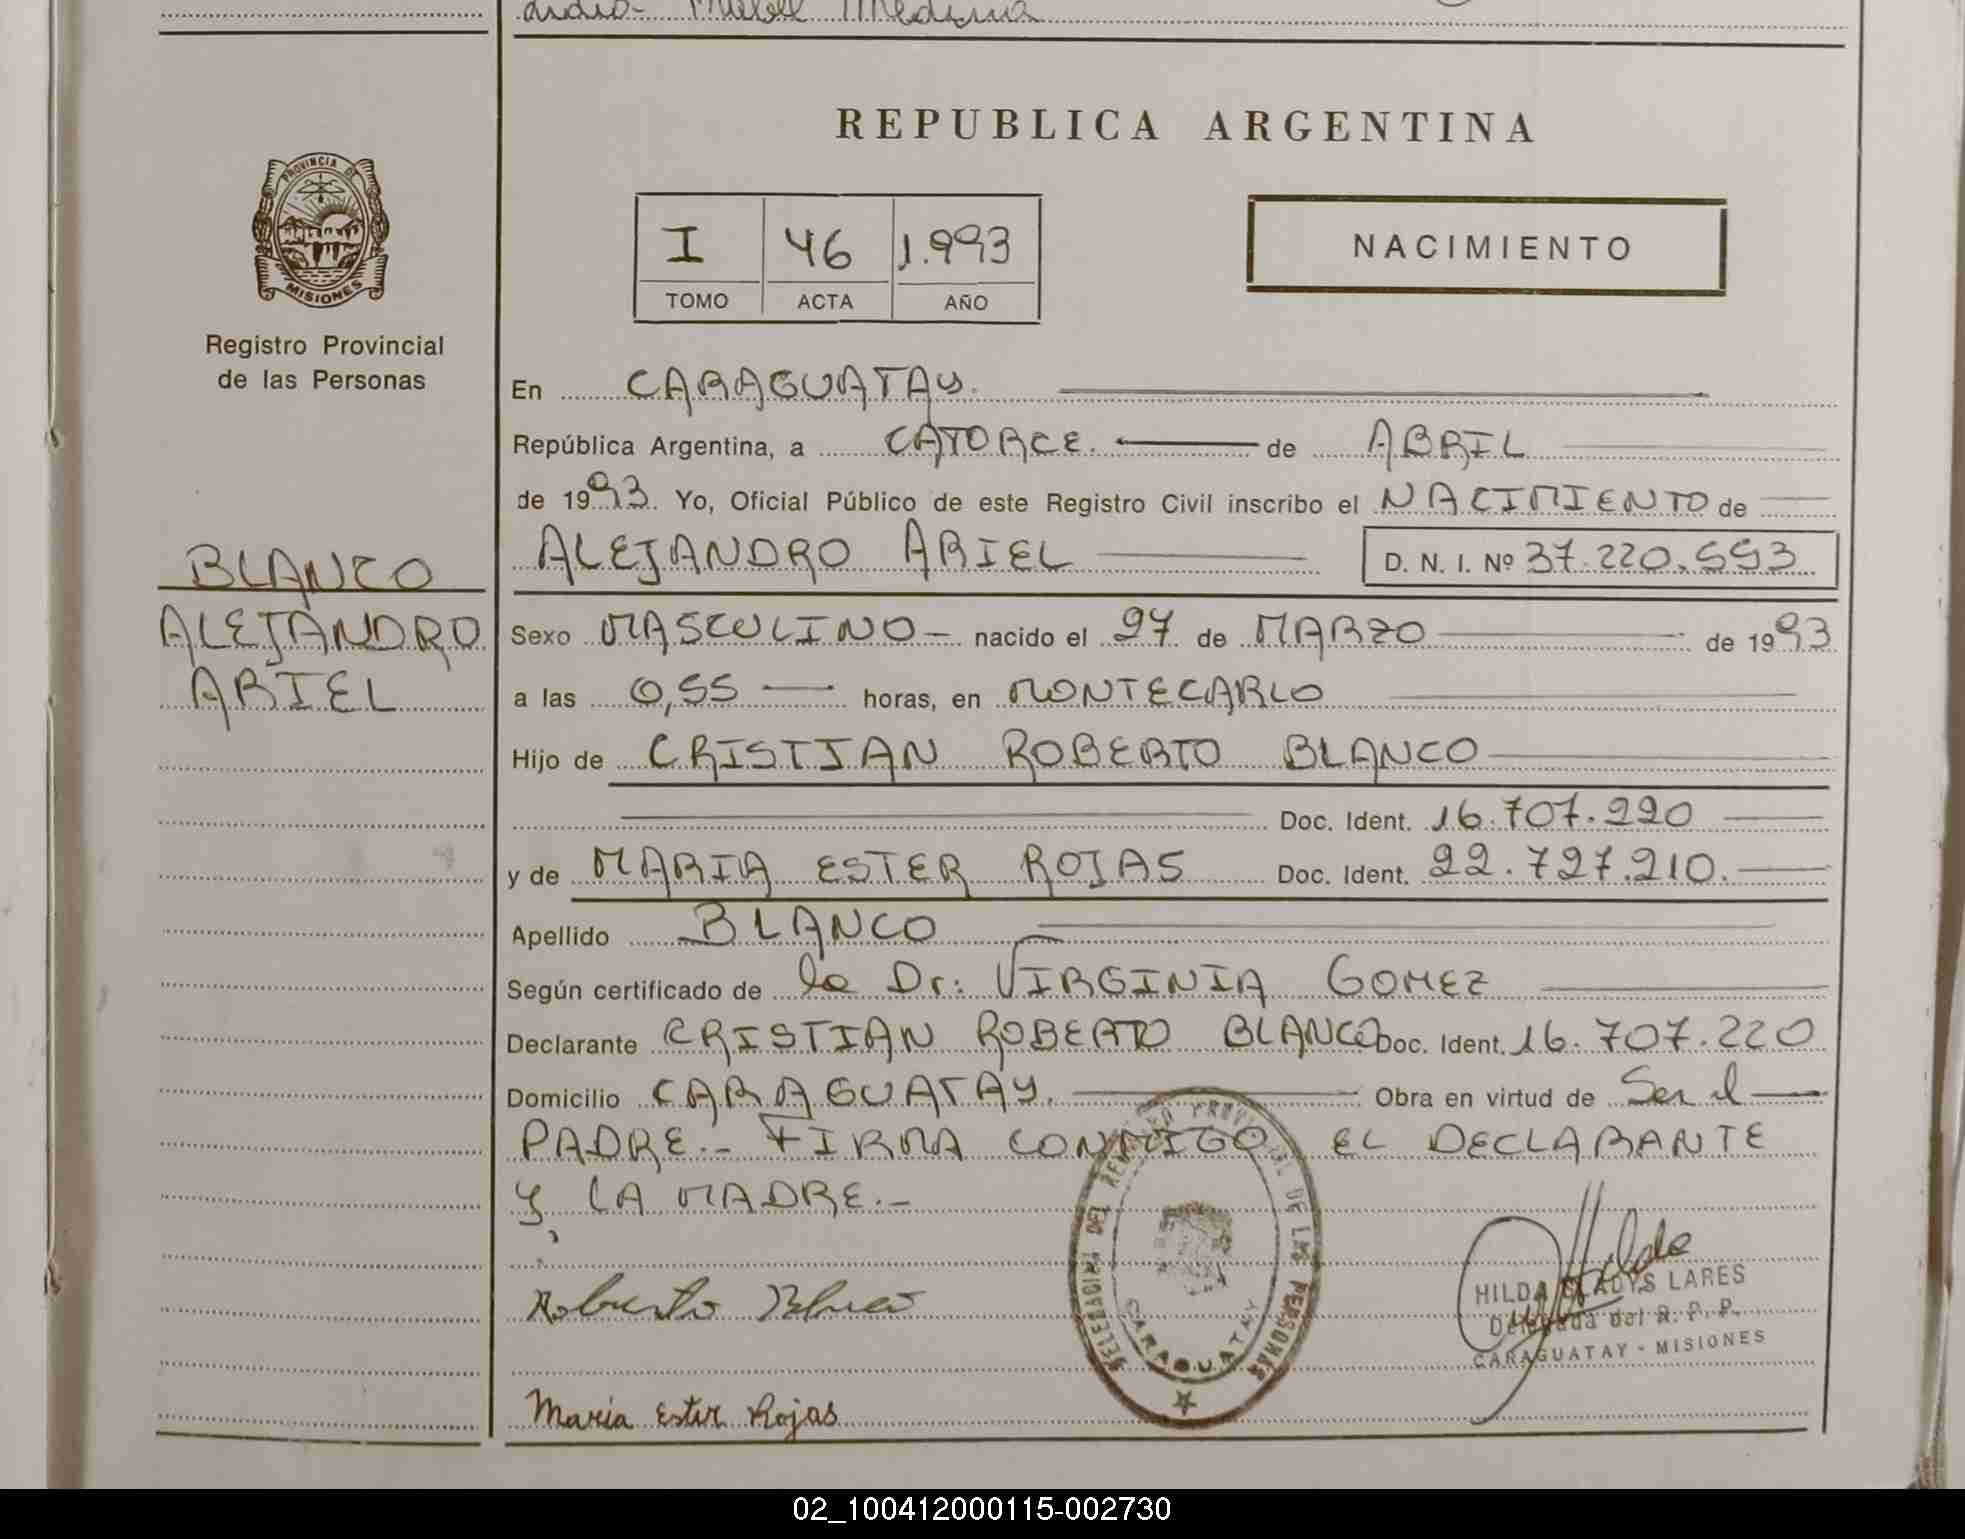 Mabel Medina
REPUBLICA ARGENTINA
PROVINCIA DE
MISIONES
Registro Provincial
de las Personas
I 46 1.993
TOMO ACTA AÑO
NACIMIENTO
En CARAGUATAY.
República Argentina, a CATORCE. de ABRIL
de 1993. Yo, Oficial Público de este Registro Civil inscribo el NACIMIENTO de
ALEJANDRO ARIEL D. N. I. Nº 37.220.593
BLANCO
ALEJANDRO
ARIEL
Sexo MASCULINO - nacido el 27 de MARZO de 1993
a las 0,55 horas, en MONTECARLO
Hijo de CRISTIAN ROBERTO BLANCO
Doc. Ident. 16.707.220
y de MARIA ESTER ROJAS Doc. Ident. 22.727.210.
Apellido BLANCO
Según certificado de la Dr: VIRGINIA GOMEZ
Declarante CRISTIAN ROBERTO BLANCO Doc. Ident. 16.707.220
Domicilio CARAGUATAY. Obra en virtud de Ser el
PADRE.- FIRMA CONMIGO EL DECLARANTE
Y, LA MADRE.-
DELEGACION DEL REGISTRO PROVINCIAL DE LAS PERSONAS
CARAGUATAY
Roberto Blanco
Hilda
HILDA GLADYS LARES
Delegada del R. P. P.
CARAGUATAY - MISIONES
María Ester Rojas
02_100412000115-002730